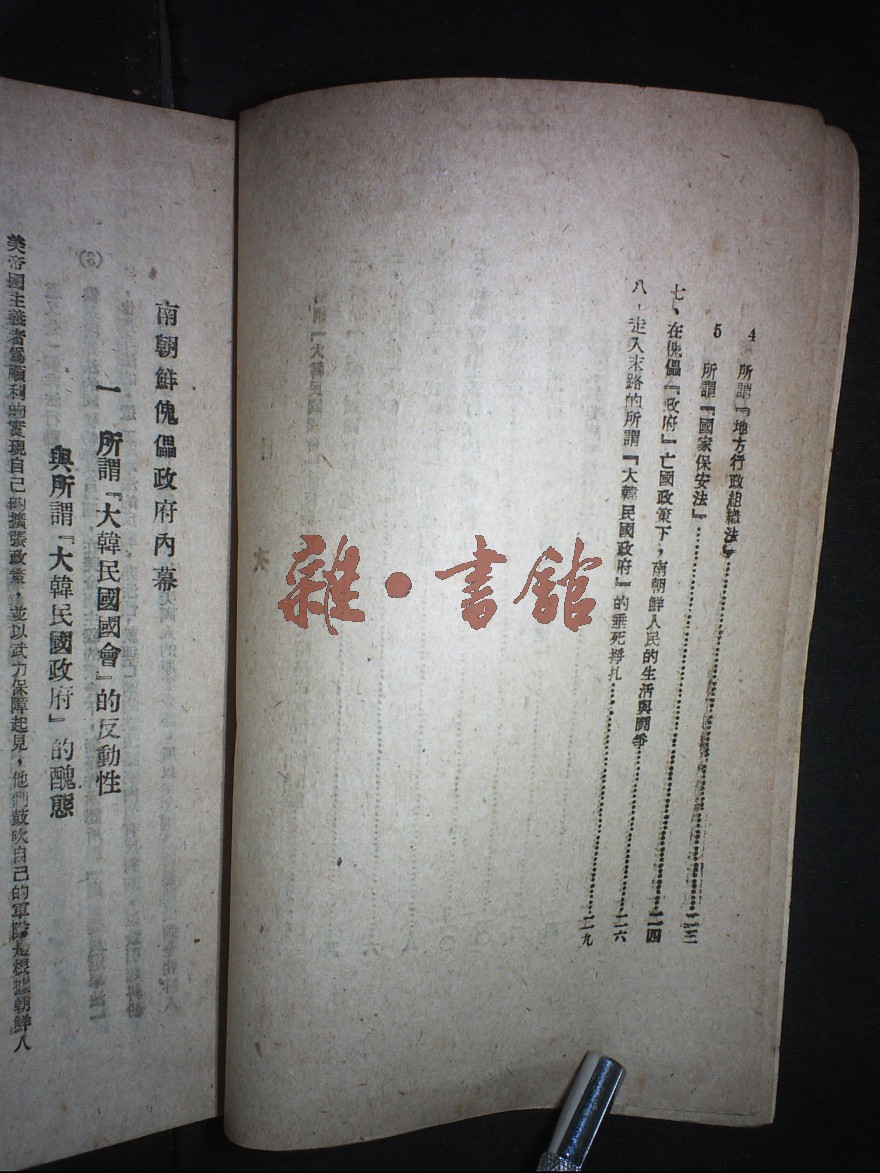 4 所謂『地方行政組織法』……二三
5 所謂『國家保安法』……二四
七、在傀儡『政府』亡國政策下，南朝鮮人民的生活與鬪爭……二六
八、走入末路的所謂『大韓民國政府』的垂死掙扎……二九
南朝鮮傀儡政府內幕
一 所謂『大韓民國國會』的反動性
與所謂『大韓民國政府』的醜態
美帝國主義者爲順利的實現自己的擴張政策，並以武力保障起見，他們鼓吹自己的軍隊是根據朝鮮人
雜·書館